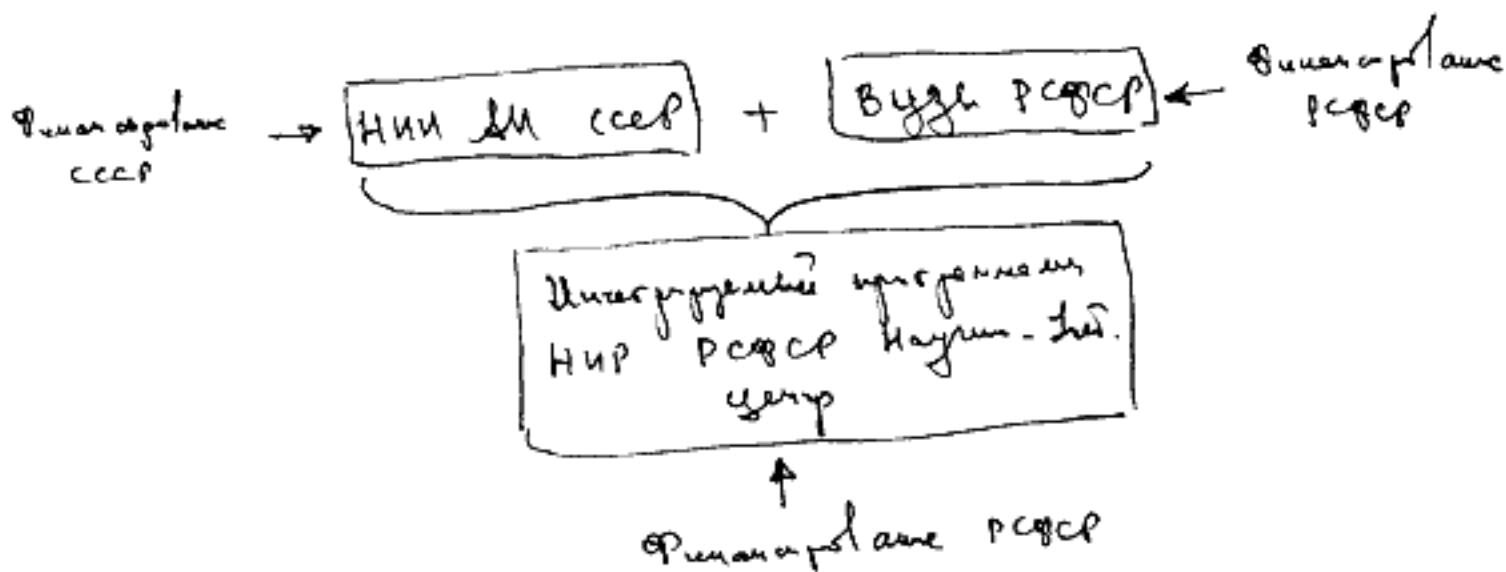 Финансирование
СССР
НИИ АН СССР
+
Вузы РСФСР
Финансирование
РСФСР
Интегрируемый программами
НИР РСФСР Научн.-
центр
Финансирование РСФСР